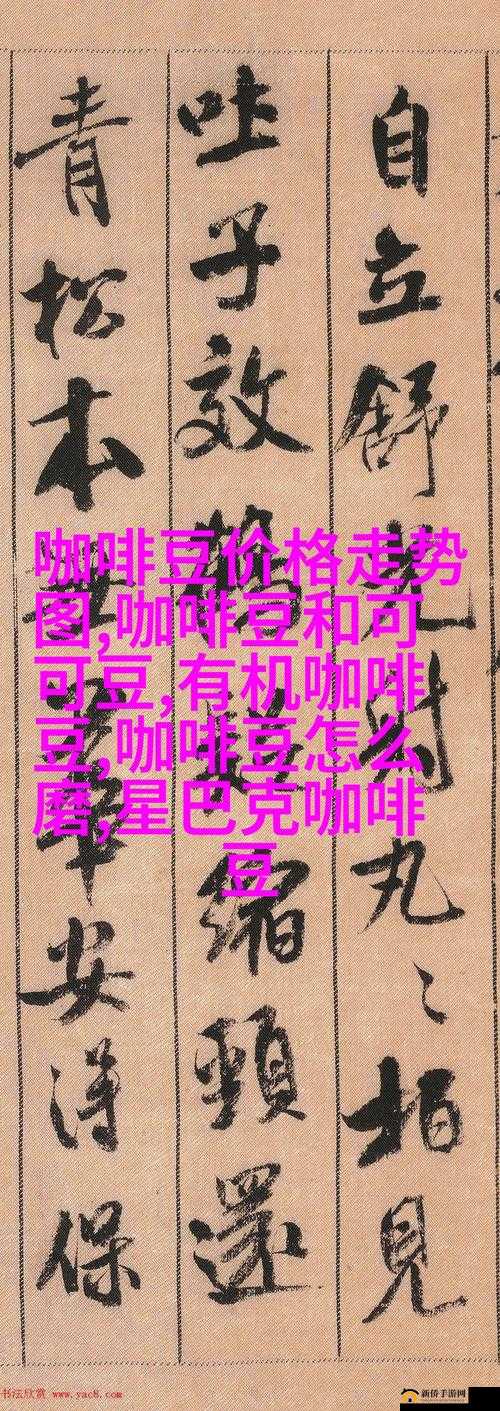 自立舒光射丸〻柏見
吐子效鶴疑縮頸還
青松本無華安得保
咖啡豆价格走势
图,咖啡豆和可
可豆,有机咖啡
豆,咖啡豆怎么
磨,星巴克咖啡
豆
书法欣赏 www.yac8.com
新侨手游网